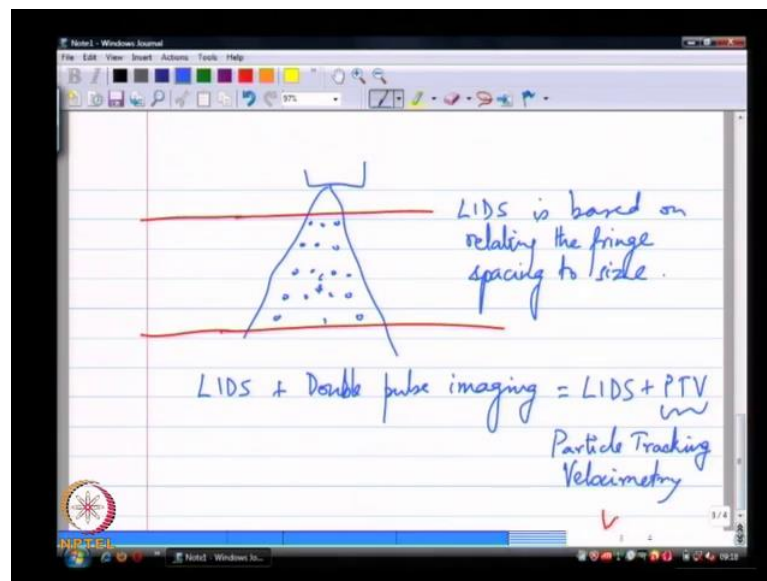 Note1 - Windows Journal
File Edit View Insert Actions Tools Help
B I
97%
LIDS is based on
relating the fringe
spacing to size.
LIDS + Double pulse imaging = LIDS + PTV
Particle Tracking
Velocimetry
3/4
NPTEL
Note1 - Windows Jo...
09:18